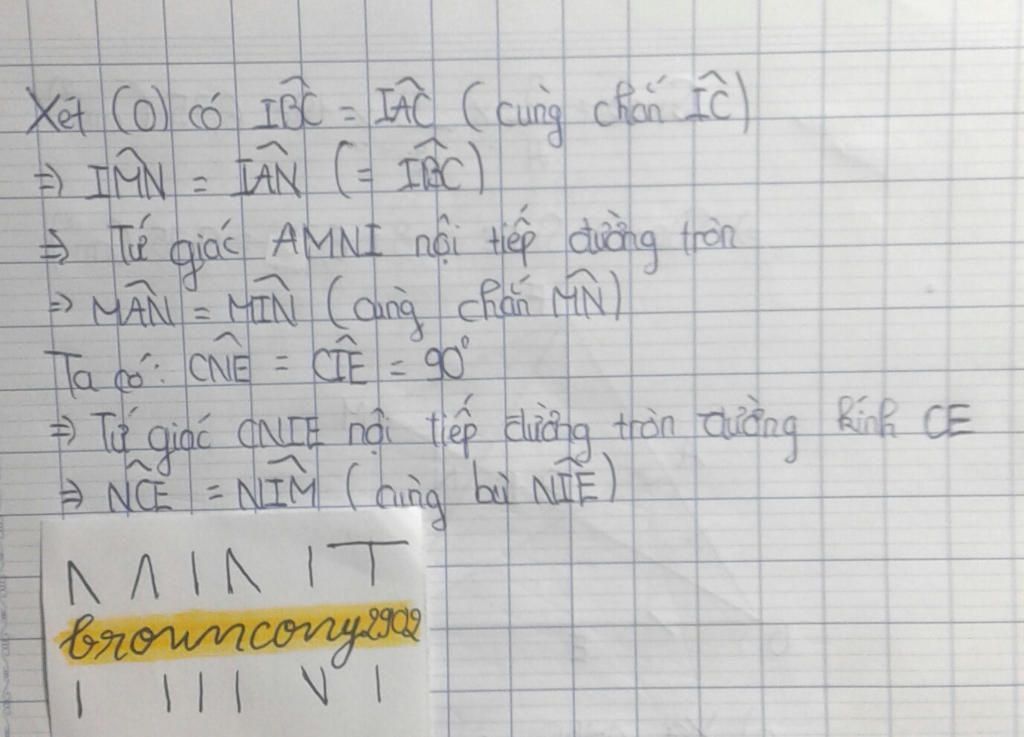 Xét (O) có IBC = IAC (cùng chắn IC)
=> IMN = IAN (= IBC)
=> Tứ giác AMNI nội tiếp đường tròn
=> MAN = MIN (cùng chắn MN)
Ta có: CNE = CIE = 90°
=> Tứ giác CNIE nội tiếp đường tròn đường kính CE
=> NCE = NIM (cùng bù NIE)
browncony2902